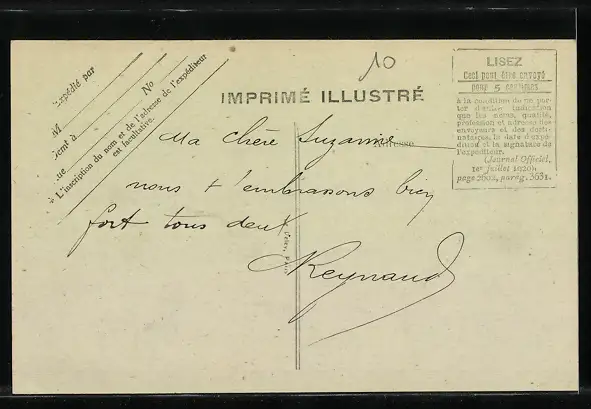 Expédié par
No
M
demt à
rue
L'inscription du nom et de l'adresse de l'expéditeur
est facultative.
10
IMPRIMÉ ILLUSTRÉ
LISEZ
Ceci peut être envoyé
pour 5 centimes
à la condition de ne por-
ter d'autre indication
que les noms, qualité,
profession et adresse des
envoyeurs et des desti-
nataires, la date d'expé-
dition et la signature de
l'expéditeur.
(Journal Officiel,
1er juillet 1920,
page 2602, parag. 3631.
Adresse
Ma chère Suzanne
nous t'embrassons bien
fort tous deux
Reynaud
Paris